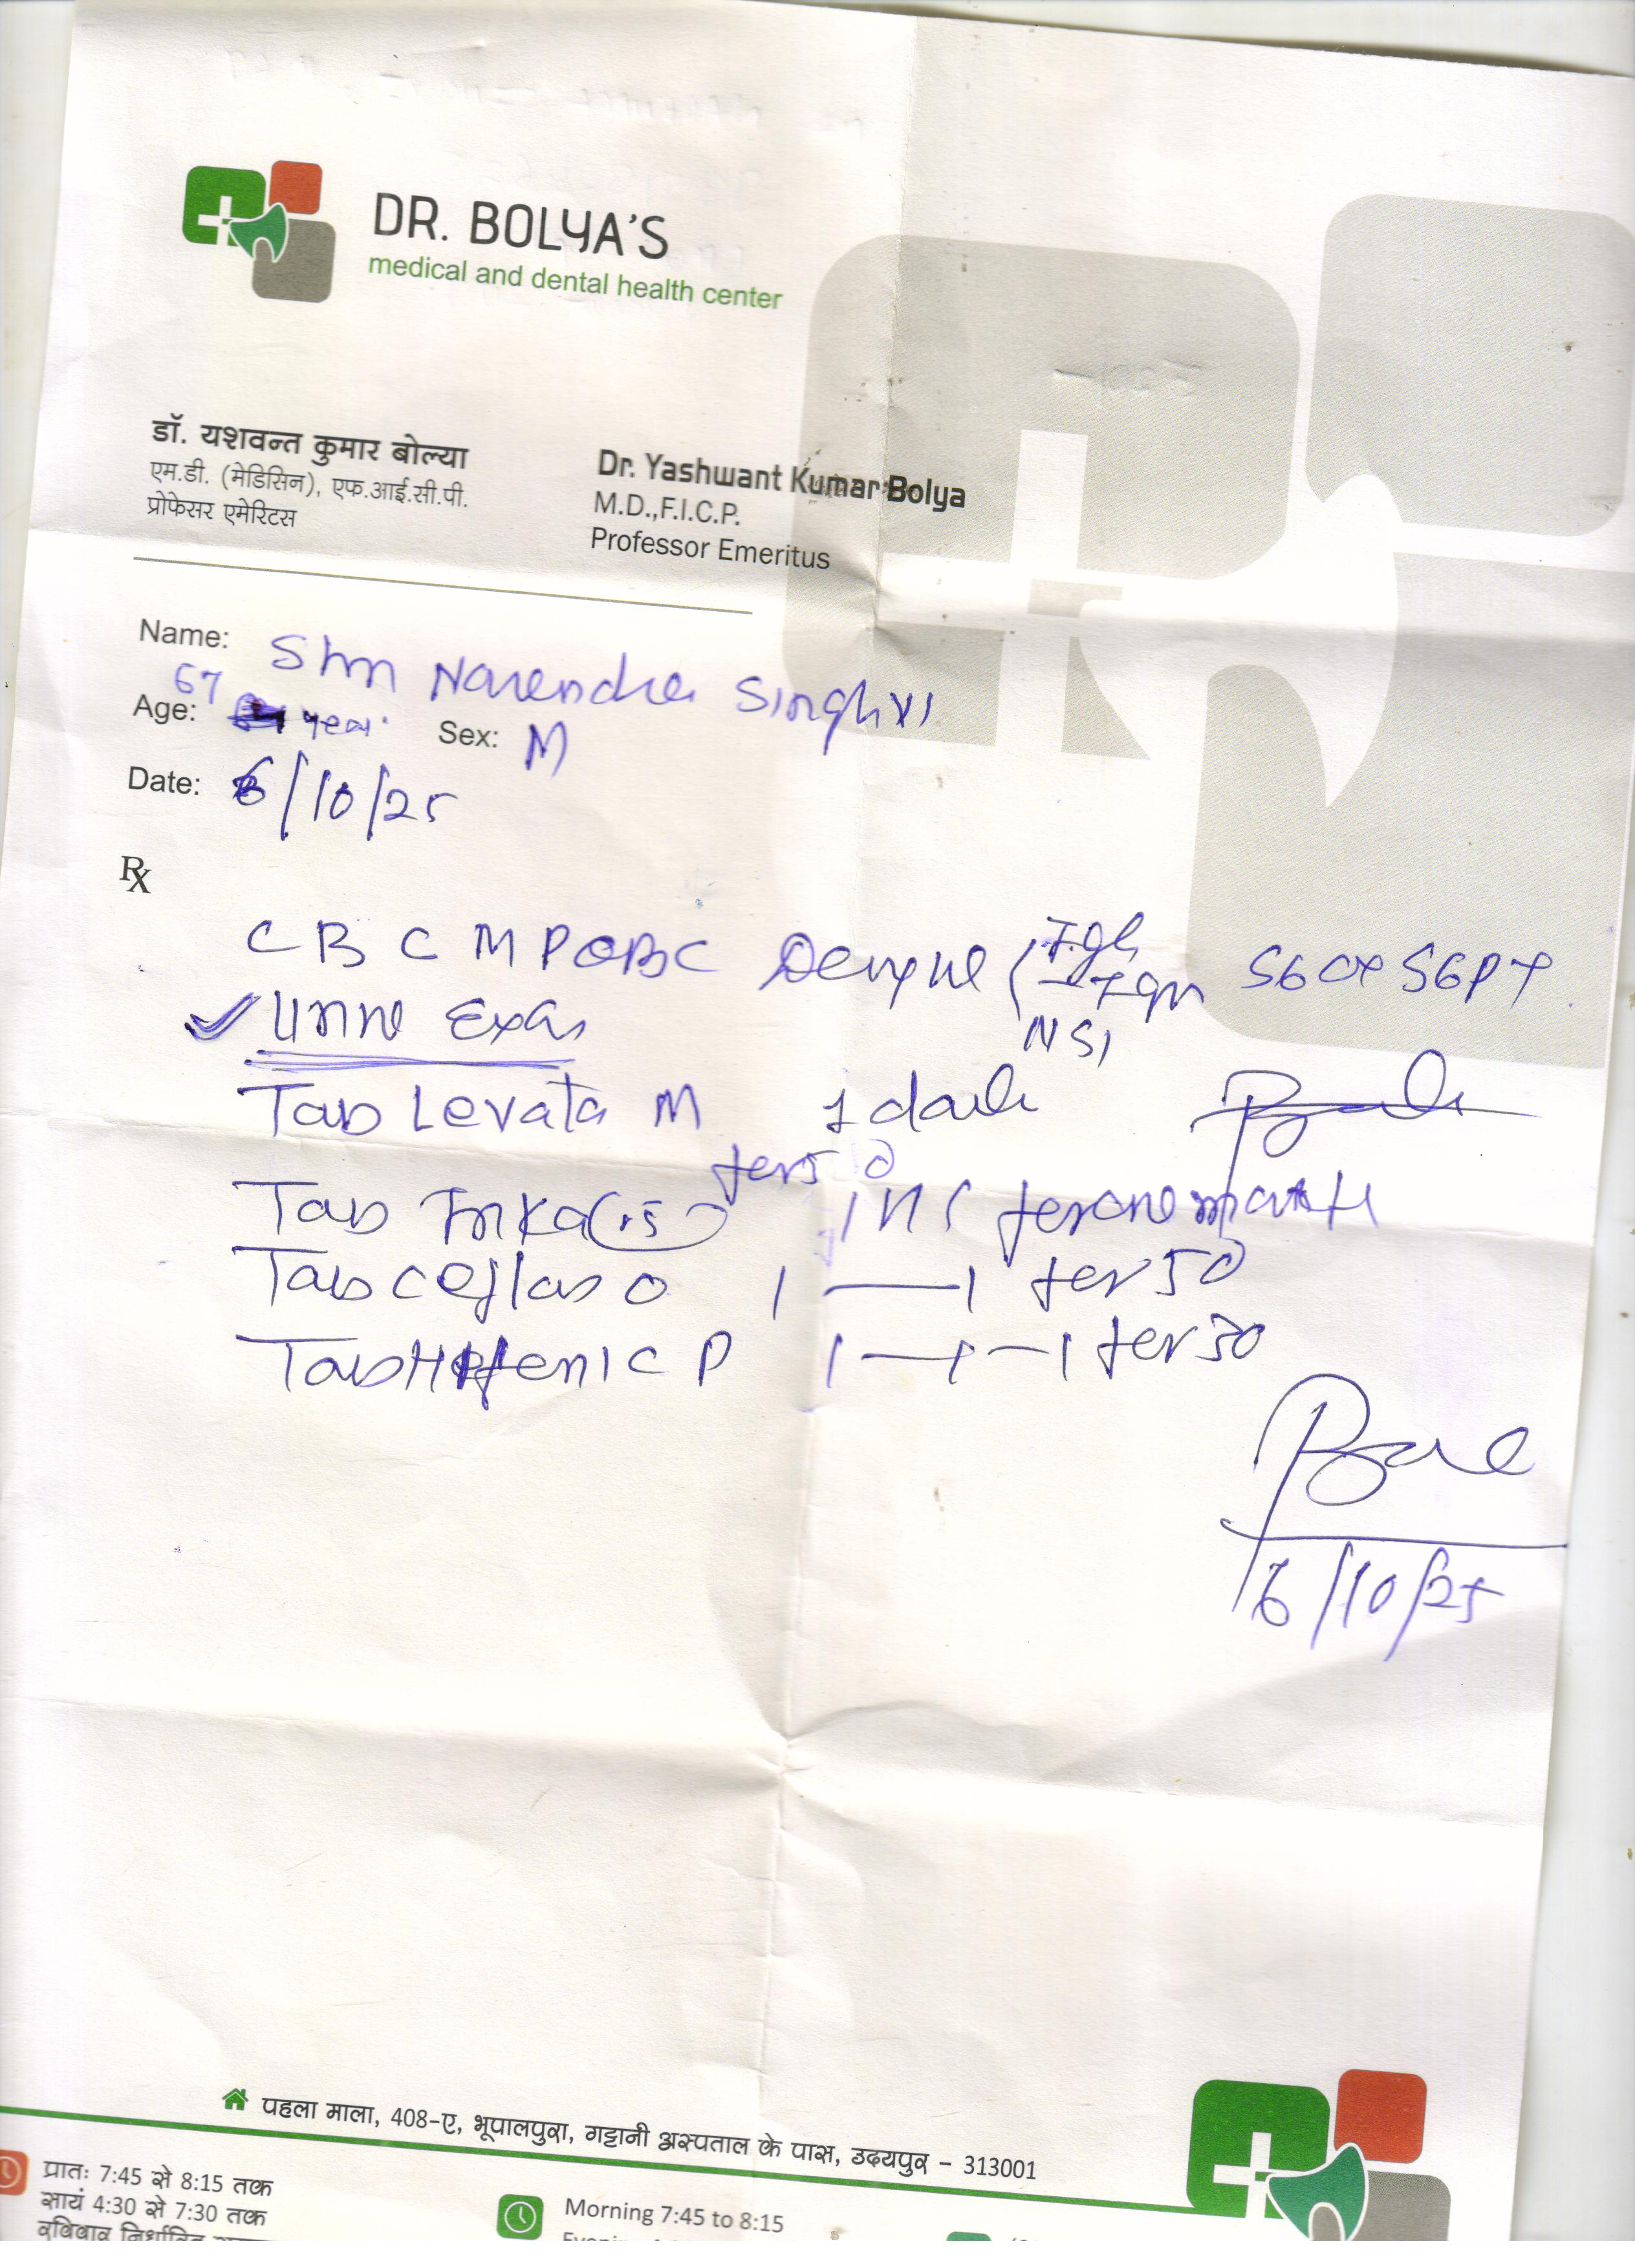 DR. BOLYA'S
medical and dental health center
डॉ. यशवन्त कुमार बोल्या
एम.डी. (मेडिसिन), एफ.आई.सी.पी.
प्रोफेसर एमेरिटस
Dr. Yashwant Kumar Bolya
M.D.,F.I.C.P.
Professor Emeritus
Name: Shri Narendra Singhvi
Age: 67 year Sex: M
Date: 6/10/25
Rx
CBC MP QBC Dengue ( IgG IgM NS1 SGOT SGPT
Urine Exam
Tab Levata M 1 daily
for 5 D
Tab (.5) for one month
Tab O 1 — 1 for 5D
Tab P 1 — 1 — 1 for
6/10/25
पहला माला, 408-ए, भूपालपुरा, गट्टानी अस्पताल के पास, उदयपुर - 313001
प्रातः 7:45 से 8:15 तक
सायं 4:30 से 7:30 तक
रविवार
Morning 7:45 to 8:15